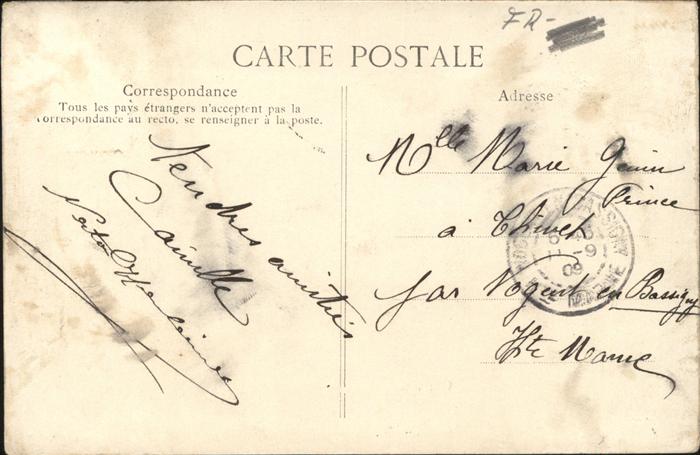 FR-
CARTE POSTALE
Correspondance
Tous les pays étrangers n'acceptent pas la
correspondance au recto, se renseigner à la poste.
Tendres amitiés
Camille
Adresse
Mlle Marie Genin
Prince
à
par Nogent en Bassigny
Hte Marne
11-9
09